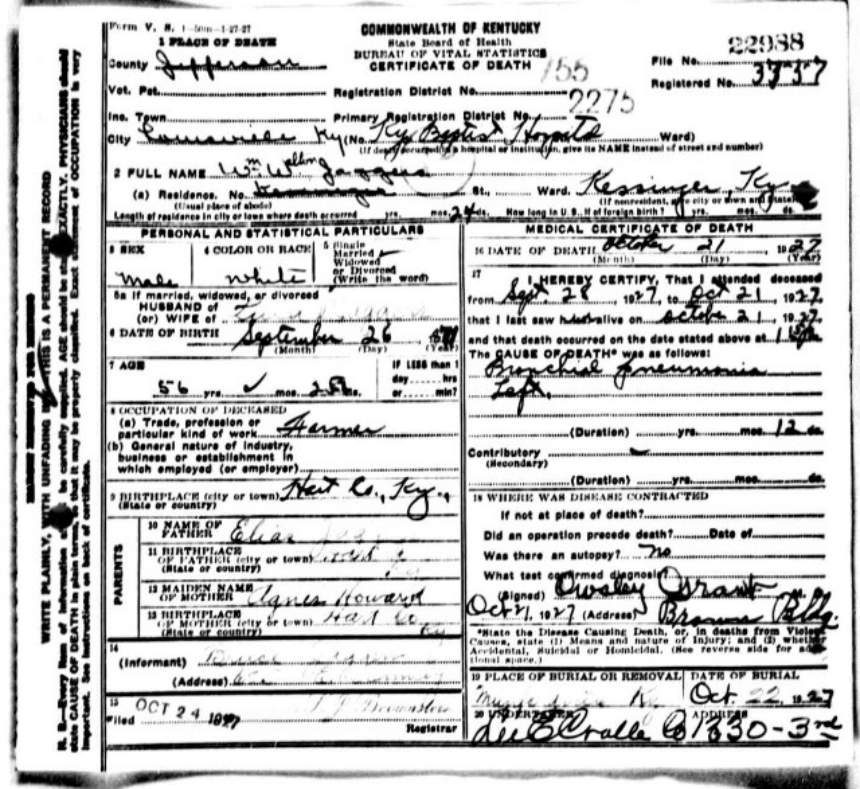 Form V. S. 1-50m-1-27-27
COMMONWEALTH OF KENTUCKY
State Board of Health
BUREAU OF VITAL STATISTICS
CERTIFICATE OF DEATH
1 PLACE OF DEATH
County Jefferson
File No. 22988
Registered No. 3737
Vot. Pct. Registration District No. 755
Inc. Town Primary Registration District No. 2275
City Louisville Ky (No. Ky Baptist Hospital Ward)
(If death occurred in a hospital or institution, give its NAME instead of street and number)
2 FULL NAME Wm Jaggers
(a) Residence. No. St., Ward. Kessinger, Ky
(Usual place of abode) (If nonresident, give city or town and State)
Length of residence in city or town where death occurred yrs. mos. 24 ds. How long in U. S., if of foreign birth? yrs. mos. ds.
PERSONAL AND STATISTICAL PARTICULARS
3 SEX
Male
4 COLOR OR RACE
White
5 Single
Married
Widowed
or Divorced
(Write the word)
5a If married, widowed, or divorced
HUSBAND of
(or) WIFE of
6 DATE OF BIRTH September 26
(Month) (Day) (Year)
7 AGE
56 yrs. mos. ds.
IF LESS than 1
day hrs
or min?
8 OCCUPATION OF DECEASED
(a) Trade, profession or
particular kind of work Farmer
(b) General nature of industry,
business or establishment in
which employed (or employer)
9 BIRTHPLACE (city or town) Hart Co., Ky.,
(State or country)
PARENTS
10 NAME OF
FATHER Elias
11 BIRTHPLACE
OF FATHER (city or town)
(State or country)
12 MAIDEN NAME
OF MOTHER Agnes Howard
13 BIRTHPLACE
OF MOTHER (city or town) Hart Co
(State or country) Ky
14
(Informant)
(Address)
15
Filed OCT 24 1927
Registrar
MEDICAL CERTIFICATE OF DEATH
16 DATE OF DEATH October 21 1927
(Month) (Day) (Year)
17
I HEREBY CERTIFY, That I attended deceased
from Sept. 28, 1927, to Oct 21, 1927,
that I last saw h alive on October 21, 1927,
and that death occurred on the date stated above at
The CAUSE OF DEATH* was as follows:
Bronchial pneumonia
Left.
(Duration) yrs. mos. 12 ds.
Contributory
(Secondary)
(Duration) yrs. mos. ds.
18 WHERE WAS DISEASE CONTRACTED
If not at place of death?
Did an operation precede death? Date of
Was there an autopsy? no
What test confirmed diagnosis?
(Signed) Owsley Grant M. D.
Oct 21, 1927 (Address) Brown Bldg.
*State the Disease Causing Death, or, in deaths from Violent
Causes, state (1) Means and nature of Injury; and (2) whether
Accidental, Suicidal or Homicidal. (See reverse side for addi-
tional space.)
19 PLACE OF BURIAL OR REMOVAL
Ky
DATE OF BURIAL
Oct. 22, 1927
20 UNDERTAKER
Lee E Cralle Co
ADDRESS
1330-3rd
WRITE PLAINLY, WITH UNFADING THIS IS A PERMANENT RECORD
N. B.—Every item of information should be carefully supplied. AGE should be stated EXACTLY. PHYSICIANS should
state CAUSE OF DEATH in plain terms, so that it may be properly classified. Exact statement of OCCUPATION is very
important. See instructions on back of certificate.